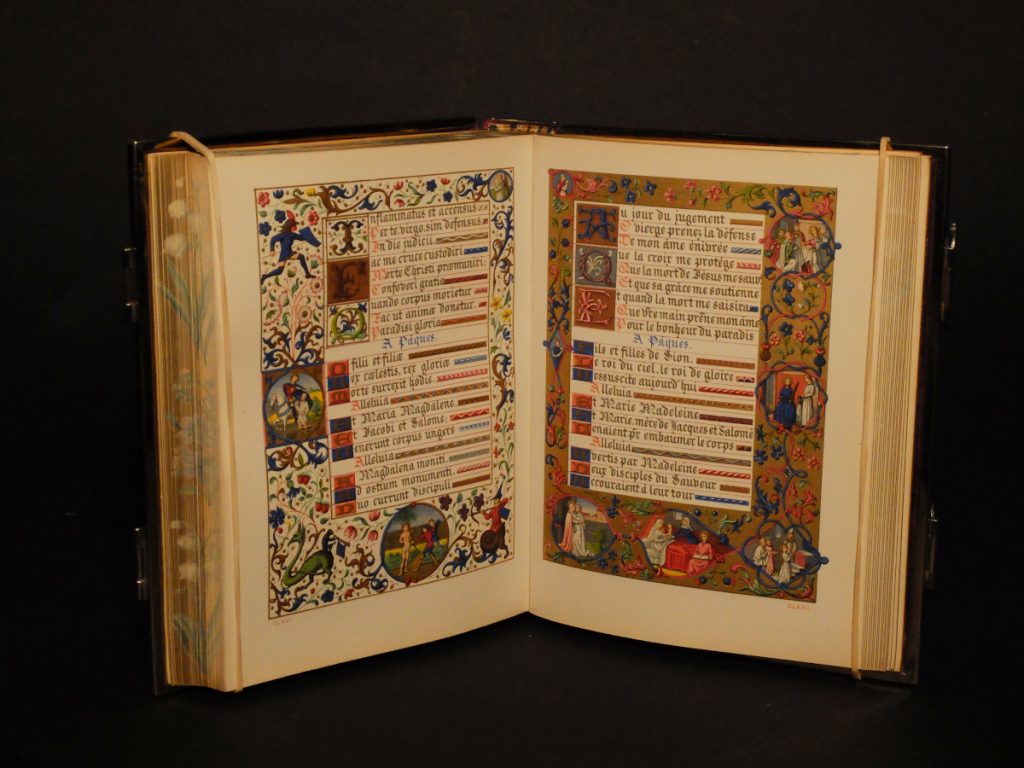 Inflammatus et accensus
Per te, virgo, sim defensus,
In die judicii.
Fac me cruce custodiri
Morte Christi præmuniri:
Confoveri gratia
Quando corpus morietur
Fac ut animæ donetur
Paradisi gloria
A Pâques.
O filii et filiæ,
Rex cælestis, rex gloriæ
Morte surrexit hodie,
Alleluia
Et Maria Magdalene,
Et Jacobi et Salome;
Venerunt corpus ungere
Alleluia
A Magdalena moniti
Ad ostium monumenti
Duo currunt discipuli
Au jour du jugement
O vierge prenez la défense
De mon âme énivrée
Que la croix me protége
Que la mort de Jésus me sauv
Et que sa grâce me soutienne
Et quand la mort me saisira
Que vtre main prêne mon âme
Pour le bonheur du paradis
A Pâques.
Fils et filles de Sion,
Le roi du ciel, le roi de gloire
Ressuscite aujourd'hui
Alleluia
Et Marie Madeleine
Et Marie, mère de Jacques et Salomé
Venaient pr embaumer le corps
Alleluia
Avertis par Madeleine
Deux disciples du Sauveur
Accouraient à leur tour
CLXXII